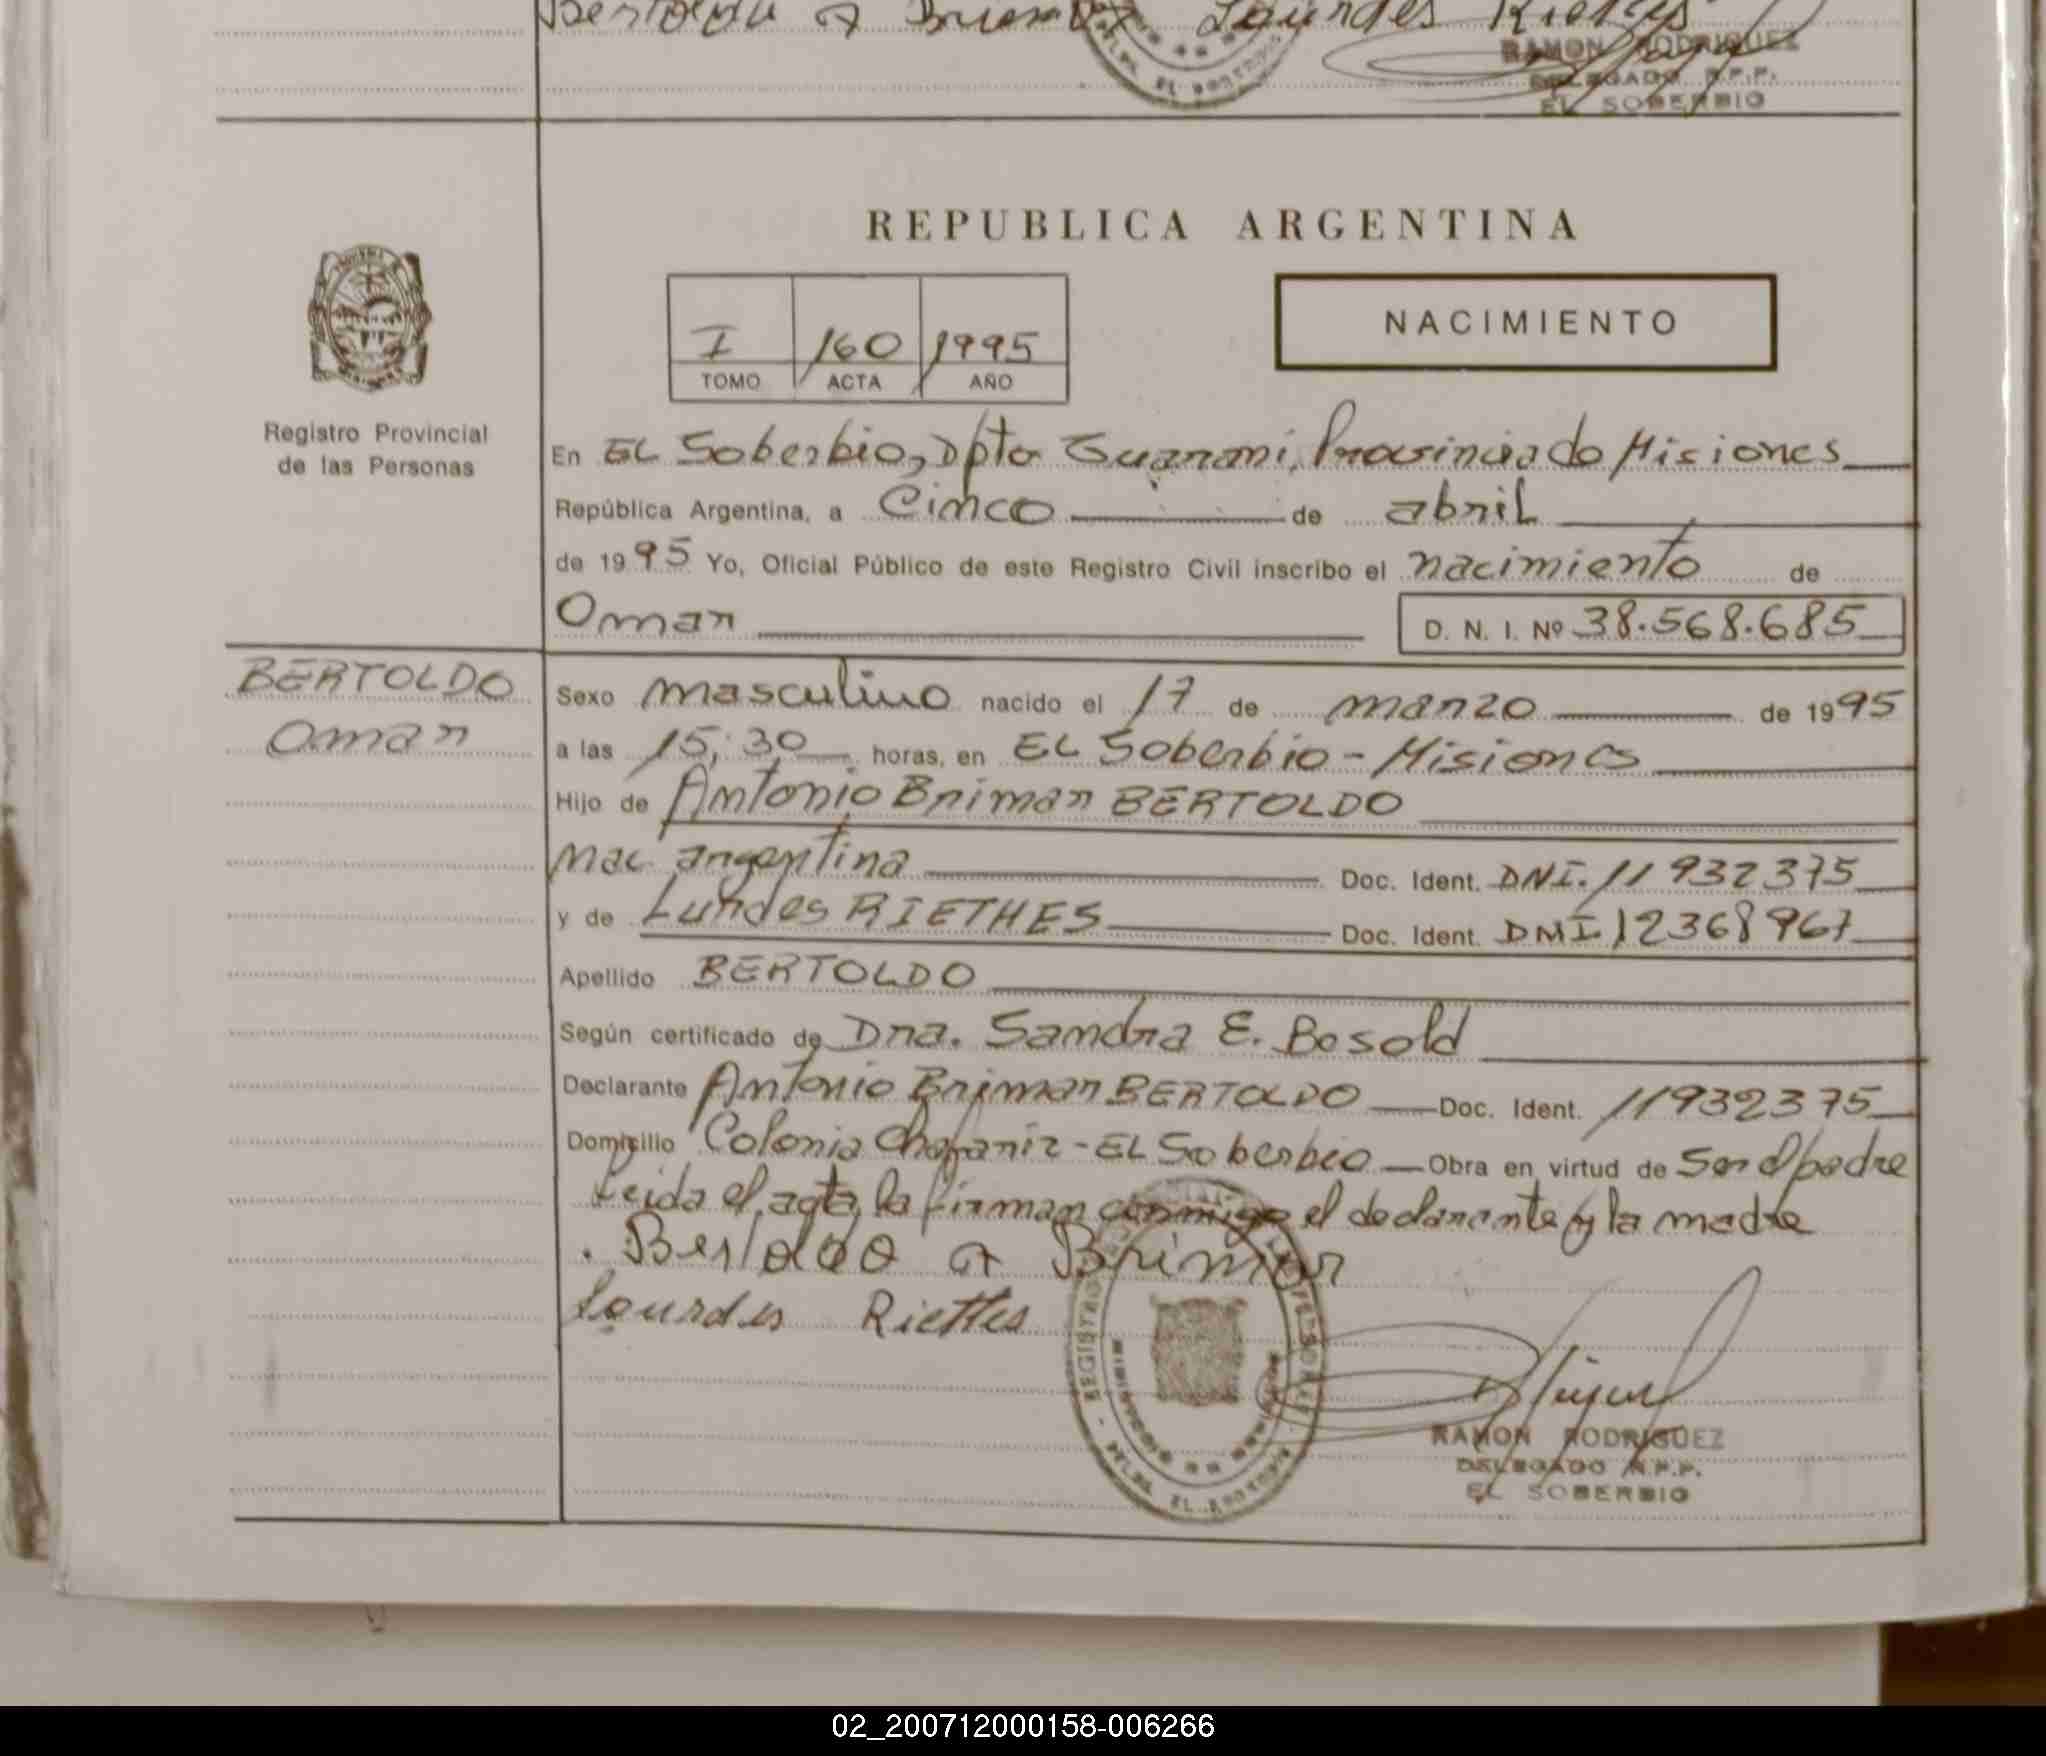 Bertoldo A Brimar Lourdes Riethes
RAMON RODRIGUEZ
DELEGADO R.P.P.
EL SOBERBIO
REPUBLICA ARGENTINA
I 160 1995
TOMO ACTA AÑO
NACIMIENTO
Registro Provincial
de las Personas
En EL Soberbio, Dpto Guarani, Provincia de Misiones
República Argentina, a Cinco de abril
de 1995 Yo, Oficial Público de este Registro Civil inscribo el nacimiento de
Omar D. N. I. Nº 38.568.685
BERTOLDO
Omar
Sexo masculino nacido el 17 de marzo de 1995
a las 15,30 horas, en EL Soberbio - Misiones
Hijo de Antonio Brimar BERTOLDO
Nac argentina Doc. Ident. DNI. 11932375
y de Lurdes RIETHES Doc. Ident. DNI 12368967
Apellido BERTOLDO
Según certificado de Dra. Sandra E. Bosold
Declarante Antonio Brimar BERTOLDO Doc. Ident. 11932375
Domicilio Colonia - EL Soberbio Obra en virtud de Ser el padre
Leida el acta, la firman conmigo el declarante y la madre
Bertoldo A Brimar
Lourdes Riethes
RAMON RODRIGUEZ
DELEGADO R.P.P.
EL SOBERBIO
02_200712000158-006266